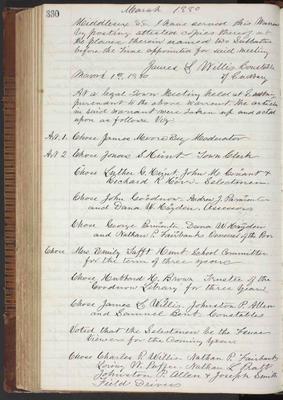 330
March 1880
Middlesex SS. I have served this Warrant
by posting attested copies thereof at
the places therein named two Sabbaths
before the time appointed for said meeting
James L. Willis Constable
March 1st 1880 of Sudbury
At a legal Town Meeting held at Sudbury
pursuant to the above warrant the articles
in said warrant were taken up and acted
upon as follows Viz.
Art. 1. Chose James Moore Esq Moderator
Art 2 Chose Jonas S Hunt Town Clerk
Chose Luther G. Hunt, John M. Conant &
Richard R. Horr Selectmen
Chose John Goodnow, Andrew J. Parmenter
and Dana W. Haydon Assessors
Chose George Parmenter Dana W. Haydon
and Nathan P. Fairbanks Overseers of the Poor
Chose Mrs Emily Tafft Hunt School Committee
for the term of three years
Chose Hubbard H. Brown Trustee of the
Goodnow Library for three years
Chose James L. Willis, Johnston P. Allen
and Samuel Bent Constables
Voted that the Selectmen be the Fence
Viewers for the Coming Year
Chose Charles P. Willis Nathan P. Fairbanks
Nathan L. Pratt
Johnston P. Allen & Joseph Smith
Field Drivers